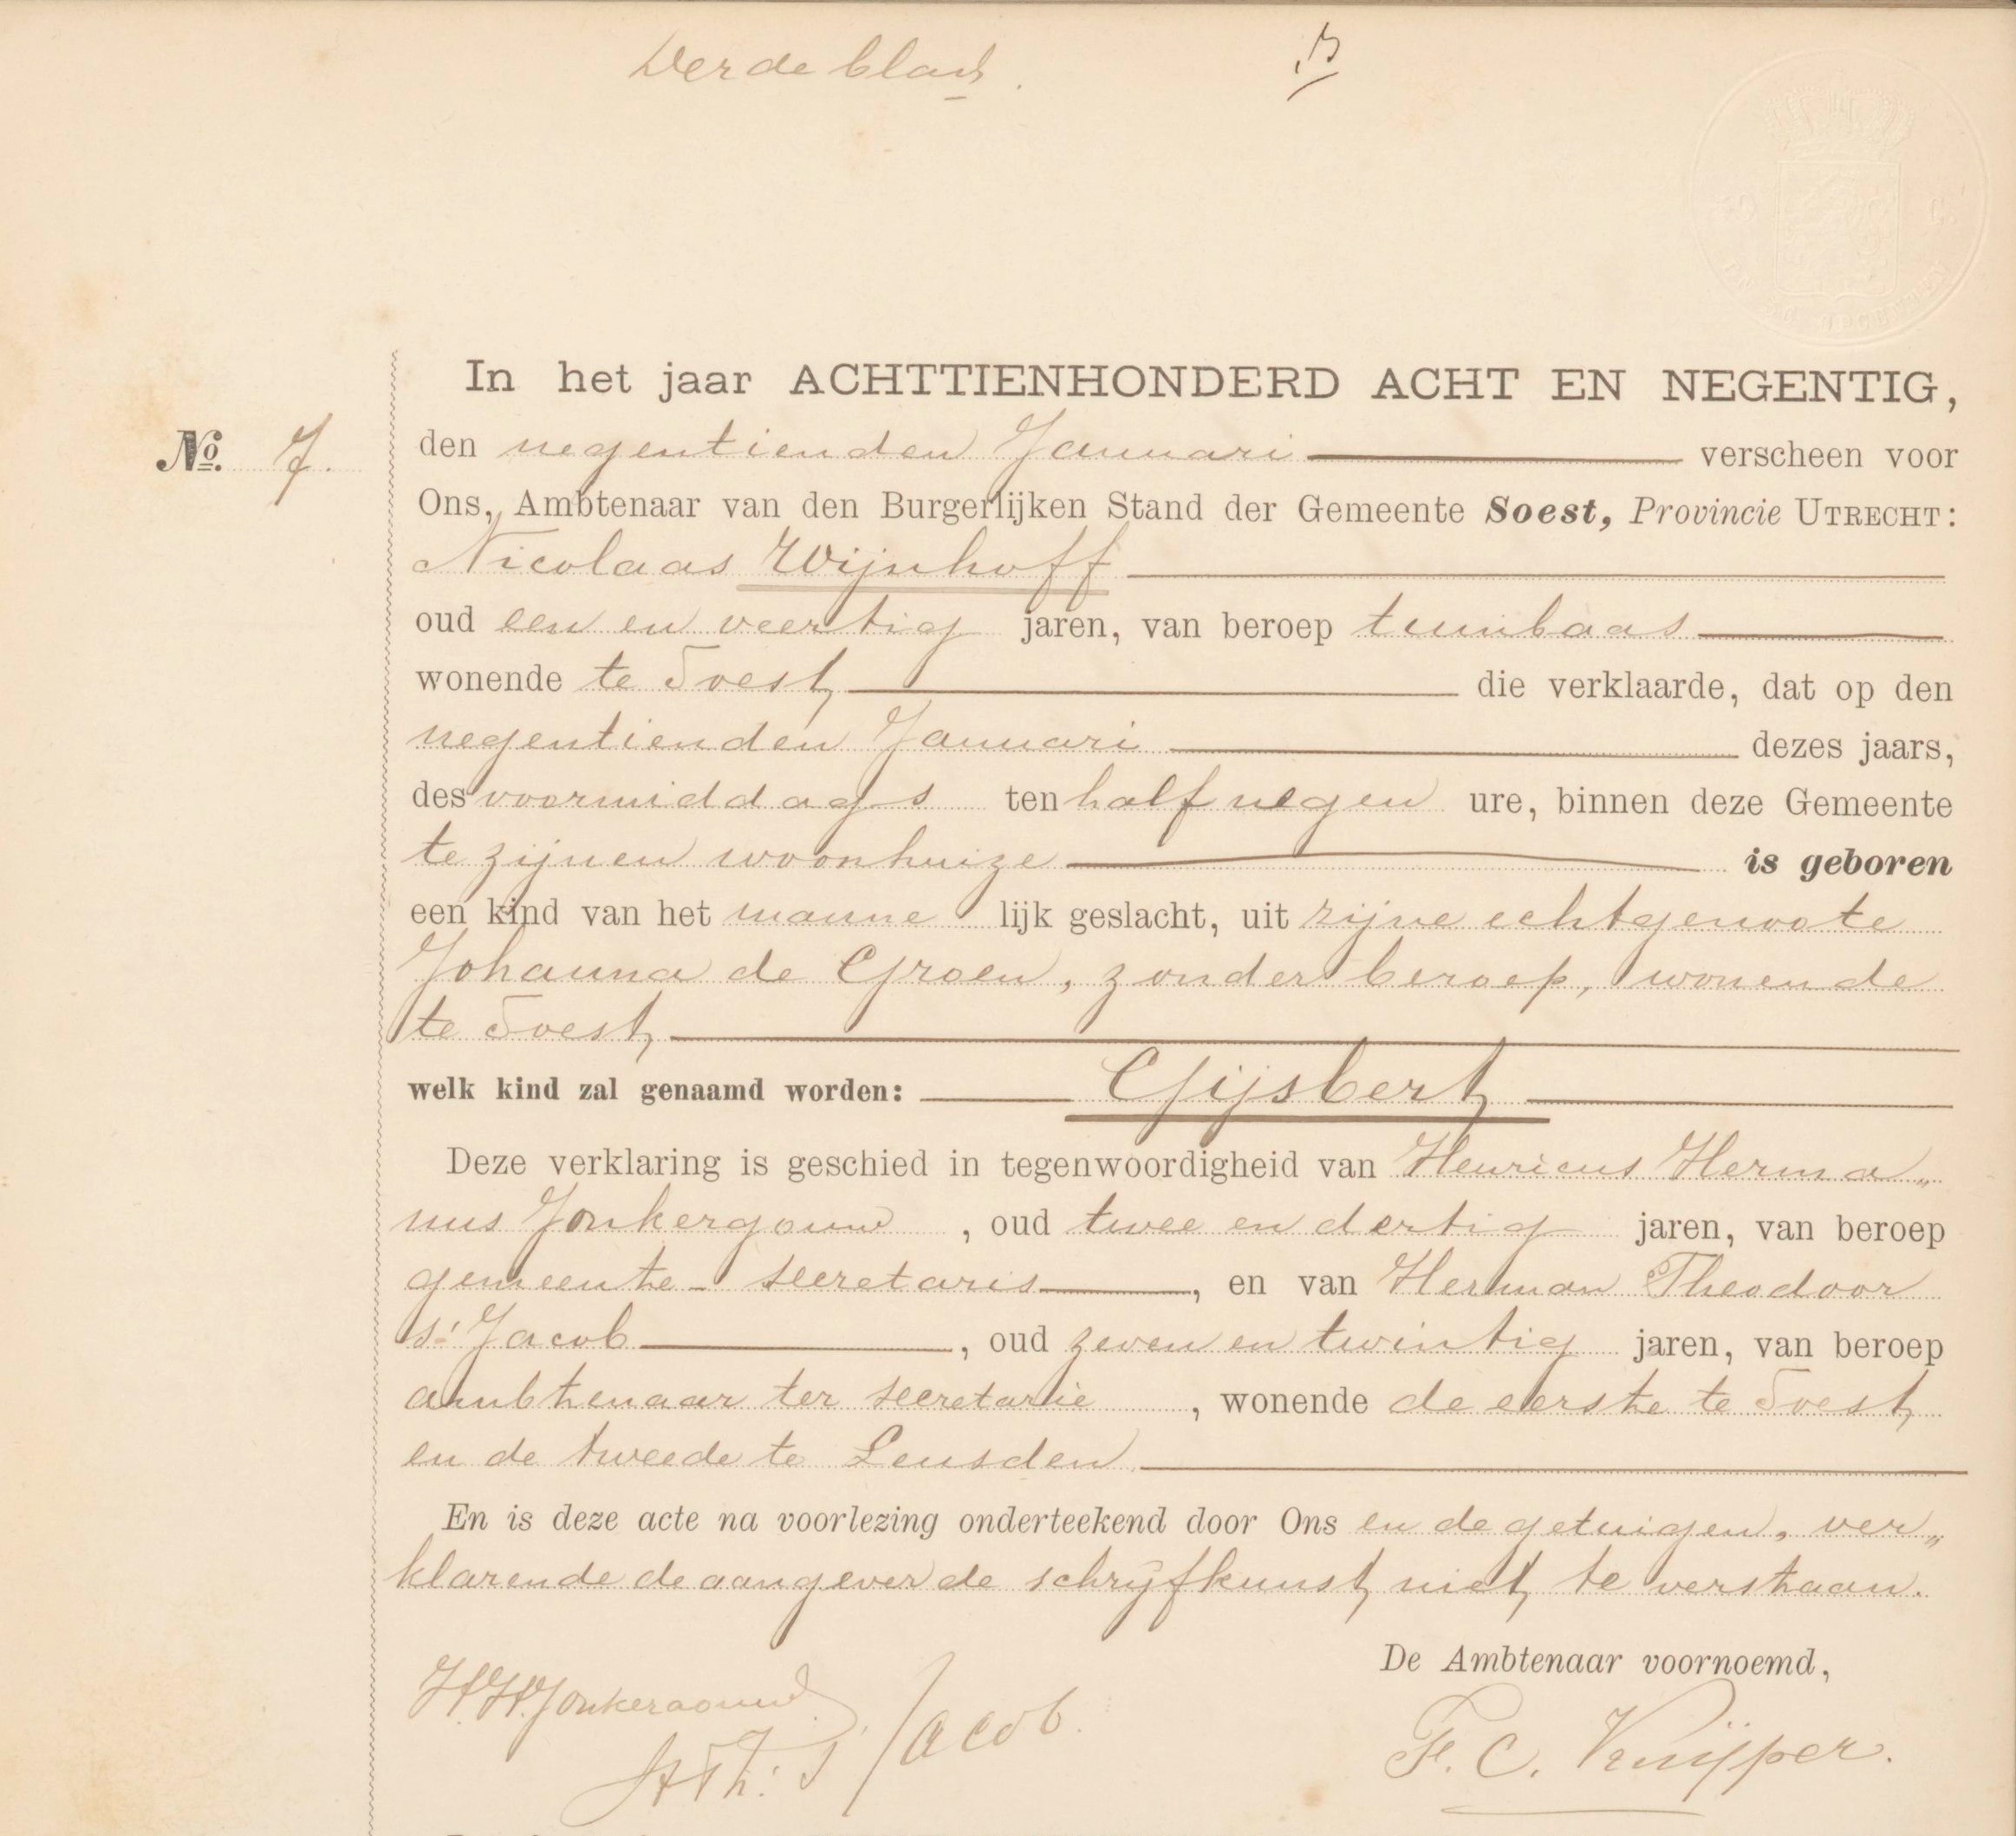 Derde blad.
In het jaar ACHTTIENHONDERD ACHT EN NEGENTIG,
No. 7. den negentienden Januari verscheen voor
Ons, Ambtenaar van den Burgerlijken Stand der Gemeente Soest, Provincie UTRECHT:
Nicolaas Wijnhoff
oud een en veertig jaren, van beroep tuinbaas
wonende te Soest, die verklaarde, dat op den
negentienden Januari dezes jaars,
des voormiddags ten half negen ure, binnen deze Gemeente
te zijnen woonhuize is geboren
een kind van het manne lijk geslacht, uit zijne echtgenoote
Johanna de Groen, zonder beroep, wonende
te Soest,
welk kind zal genaamd worden: Gijsbert
Deze verklaring is geschied in tegenwoordigheid van Henricus Herma„
nus Jonkergouw, oud twee en dertig jaren, van beroep
gemeente-secretaris, en van Herman Theodoor
s' Jacob, oud zeven en twintig jaren, van beroep
ambtenaar ter secretarie, wonende de eerste te Soest,
en de tweede te Leusden
En is deze acte na voorlezing onderteekend door Ons en de getuigen, ver„
klarende de aangever de schrijfkunst niet te verstaan.
De Ambtenaar voornoemd,
H.H. Jonkergouw
HTh: s' Jacob.
F. C. Kuijper.